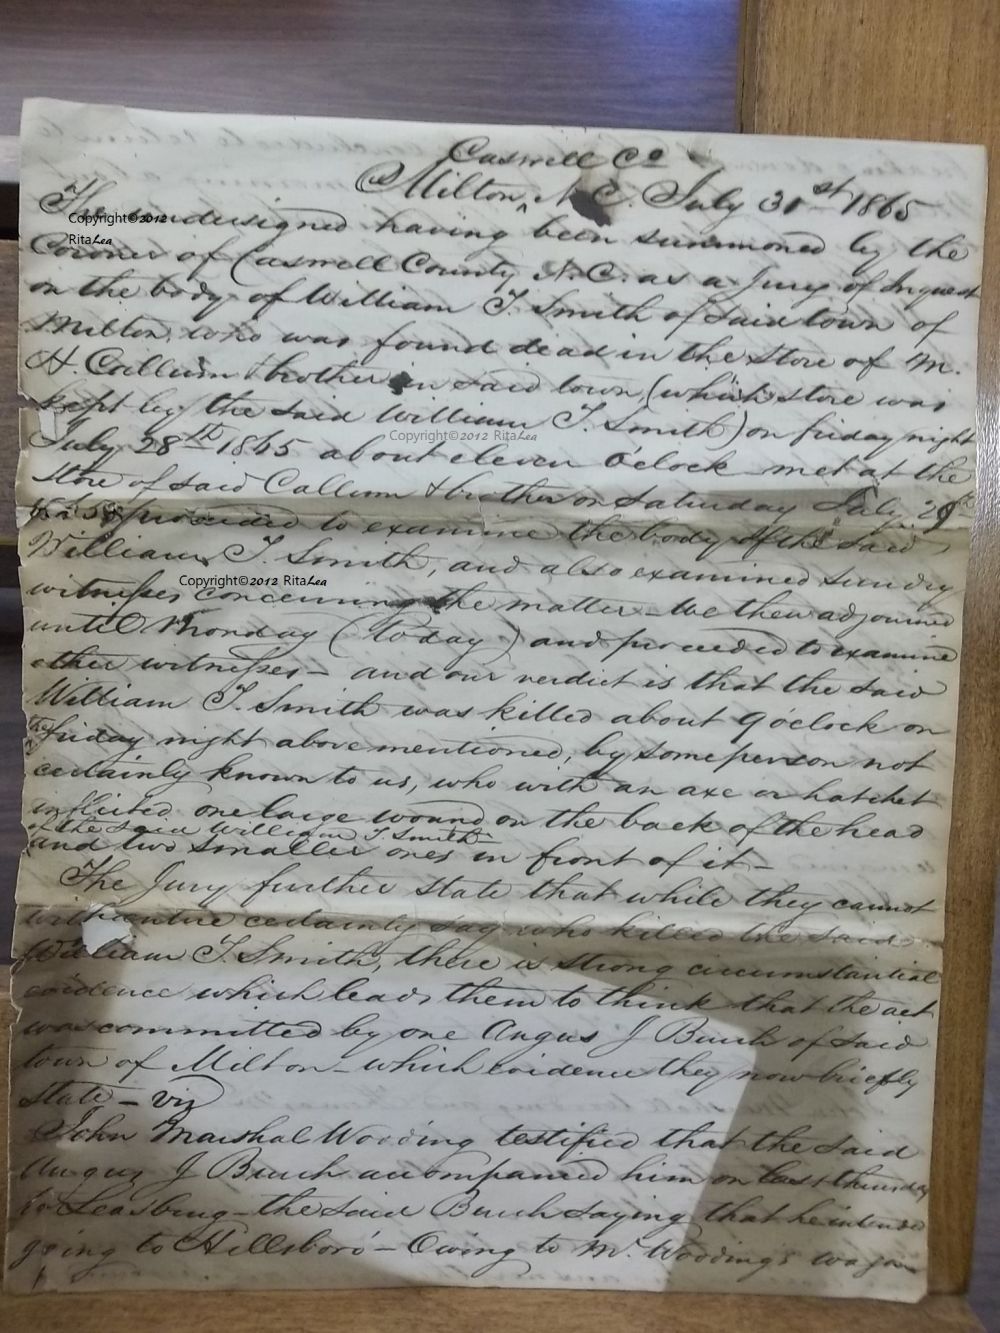 Caswell Co
Milton, N. C. July 31st 1865
The undersigned having been summoned by the
Coroner of Caswell County N. C. as a Jury of Inquest
on the body of William T. Smith of said town of
Milton, who was found dead in the store of M.
H. Callum & brother in said town, (which store was
kept by the said William T. Smith) on friday night
July 28th 1865 about eleven O'clock met at the
store of said Callum & brother on Saturday July 29th
proceeded to examine the body of the said
William T. Smith, and also examined sundry
witnesses concerning the matter - We then adjourned
until Monday (Today) and proceeded to examine
other witnesses - and our verdict is that the said
William T. Smith was killed about 9 oclock on
the friday night above mentioned, by some person not
certainly known to us, who with an axe or hatchet
inflicted one large wound on the back of the head
of the said William T Smith
and two smaller ones in front of it -
The Jury further state that while they cannot
with entire certainty say who killed the said
William T. Smith, there is strong circumstantial
evidence which leads them to think that the act
was committed by one Angus J Burch of said
town of Milton - which evidence they now briefly
state - viz
John Marshal Wooding testified that the said
Angus J Burch accompanied him on last thursday
to Leasburg - the said Burch saying that he intended
going to Hillsboro' - Owing to Mr. Wooding's wagon
Copyright©2012
RitaLea
Copyright©2012 RitaLea
Copyright©2012 RitaLea